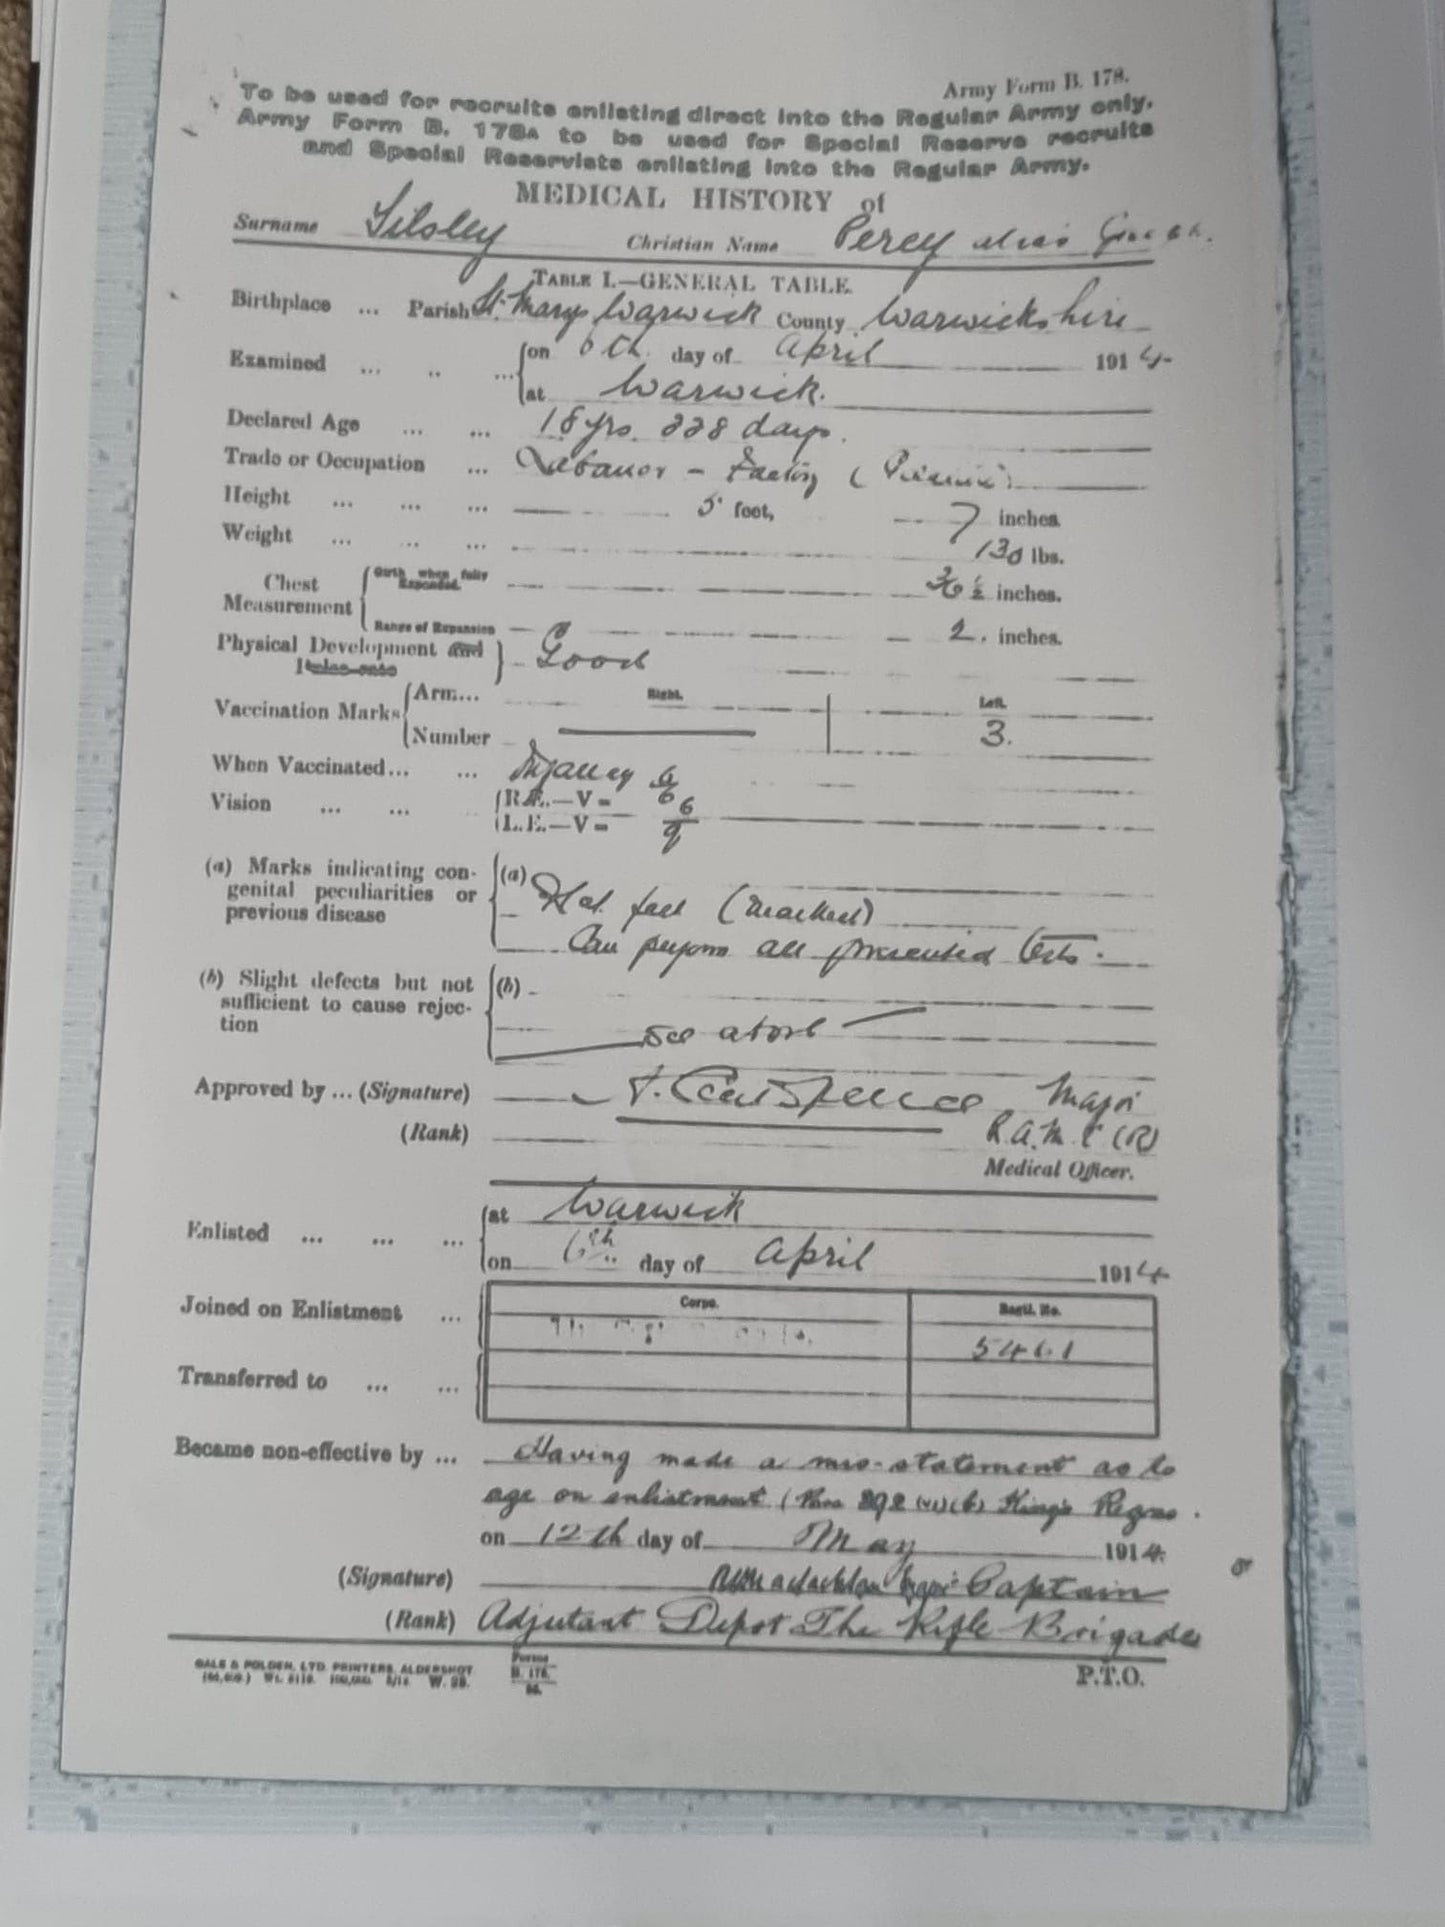 Army Form B. 178.
To be used for recruits enlisting direct into the Regular Army only.
Army Form B. 178A to be used for Special Reserve recruits
and Special Reservists enlisting into the Regular Army.
MEDICAL HISTORY of
Surname Silsley Christian Name Percy alias
TABLE I.—GENERAL TABLE.
Birthplace ... Parish St. Marys Warwick County Warwickshire
Examined ... .. ... on 6th day of April 1914
at Warwick.
Declared Age ... ... 18 yrs. 228 days.
Trade or Occupation ... Labourer - Factory
Height ... ... ... 5 feet, 7 inches.
Weight ... ... ... 130 lbs.
Chest Measurement Girth when fully Expanded 36 1/2 inches.
Range of Expansion 2. inches.
Physical Development and Good
Vaccination Marks Arm... Right. Left.
Number 3.
When Vaccinated... ... Infancy
Vision ... ... R.E.—V= 6/6
L.E.—V= 6/9
(a) Marks indicating con- (a)
genital peculiarities or Flat feet (marked)
previous disease Can perform all presented tests.
(b) Slight defects but not (b) -
sufficient to cause rejec- see above
tion
Approved by ... (Signature) Major
(Rank) R.A.M.C (R)
Medical Officer.
Enlisted ... ... ... at Warwick
on 6th day of April 1914
Corps. Regtl. No.
Joined on Enlistment ... 5461
Transferred to ... ...
Became non-effective by ... Having made a mis-statement as to
age on enlistment (Para 392 (VI)(b) King's Regns.
on 12th day of May 1914.
(Signature) Captain
(Rank) Adjutant Depot The Rifle Brigade
GALE & POLDEN, LTD. PRINTERS, ALDERSHOT
Forms
B. 178.
P.T.O.